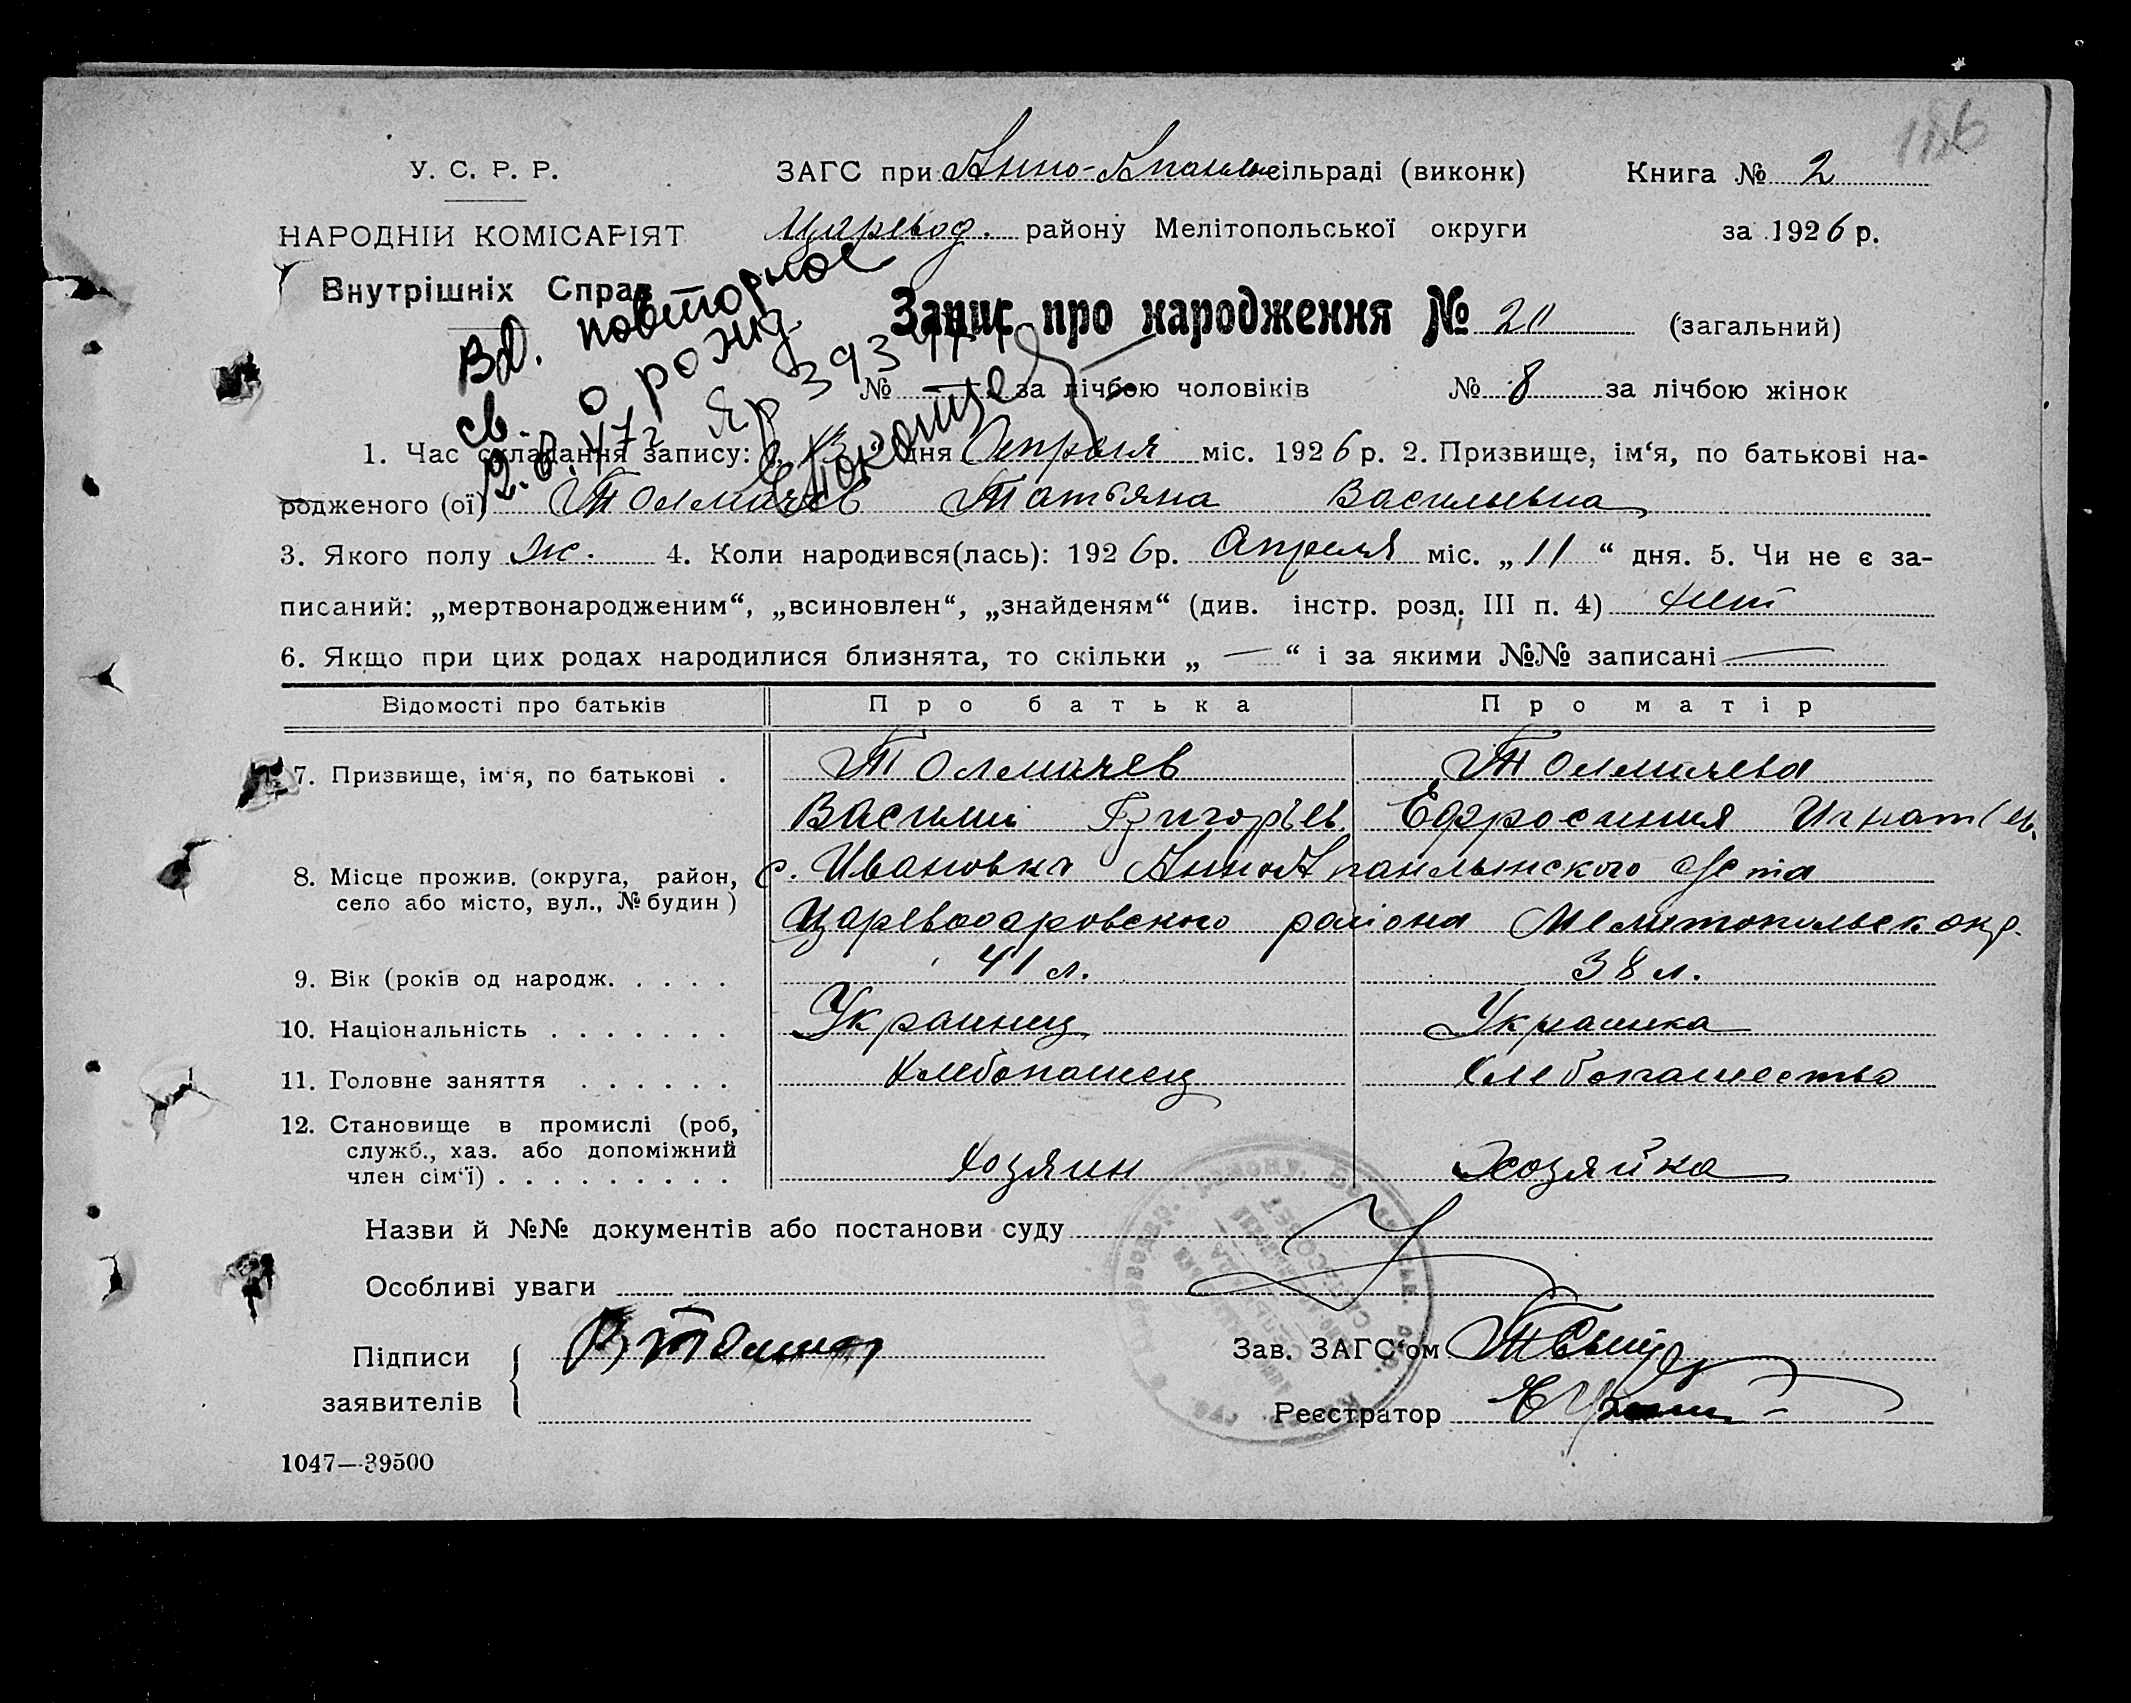 У. С. Р. Р.
ЗАГС при Анно-Апанль сільраді (виконк)
Книга № 2
НАРОДНІЙ КОМІСАРІЯТ
Царевод. району Мелітопольської округи
за 1926 р.
Внутрішніх Справ
Запис про народження № 20 (загальний)
Вд. повторное
св. о рожд.
№ — за лічбою чоловіків № 8 за лічбою жінок
1. Час складання запису: „13“ дня Апреля міс. 1926 р. 2. Призвище, ім‘я, по батькові на-
родженого (ої) Толмачев Татьяна Васильевна
3. Якого полу ж. 4. Коли народився(лась): 1926р. Апреля міс. „11“ дня. 5. Чи не є за-
писаний: „мертвонародженим“, „всиновлен“, „знайденям“ (див. інстр. розд. III п. 4) нет
6. Якщо при цих родах народилися близнята, то скільки „ — “ і за якими №№ записані —
Відомості про батьків Про батька Про матір
7. Призвище, ім‘я, по батькові . Толмачев Толмачева
Василий Григорьев. Ефросиния Игнатьев.
8. Місце прожив. (округа, район, с. Ивановка Анно-Апанлынского с/сета
село або місто, вул., № будин) Цареводаровского района Мелитопольск. окр.
9. Вік (років од народж. . . . . 41 л. 38 л.
10. Національність . . . . . . . Украинец Украинка
11. Головне заняття . . . . . . Хлебопашец Хлебопашество
12. Становище в промислі (роб,
служб., хаз. або допоміжний Хозяин Хозяйка
член сім‘ї) . . . . . . . . .
Назви й №№ документів або постанови суду
Особливі уваги
Підписи
заявителів
Зав. ЗАГС‘ом
Реєстратор
1047—39500